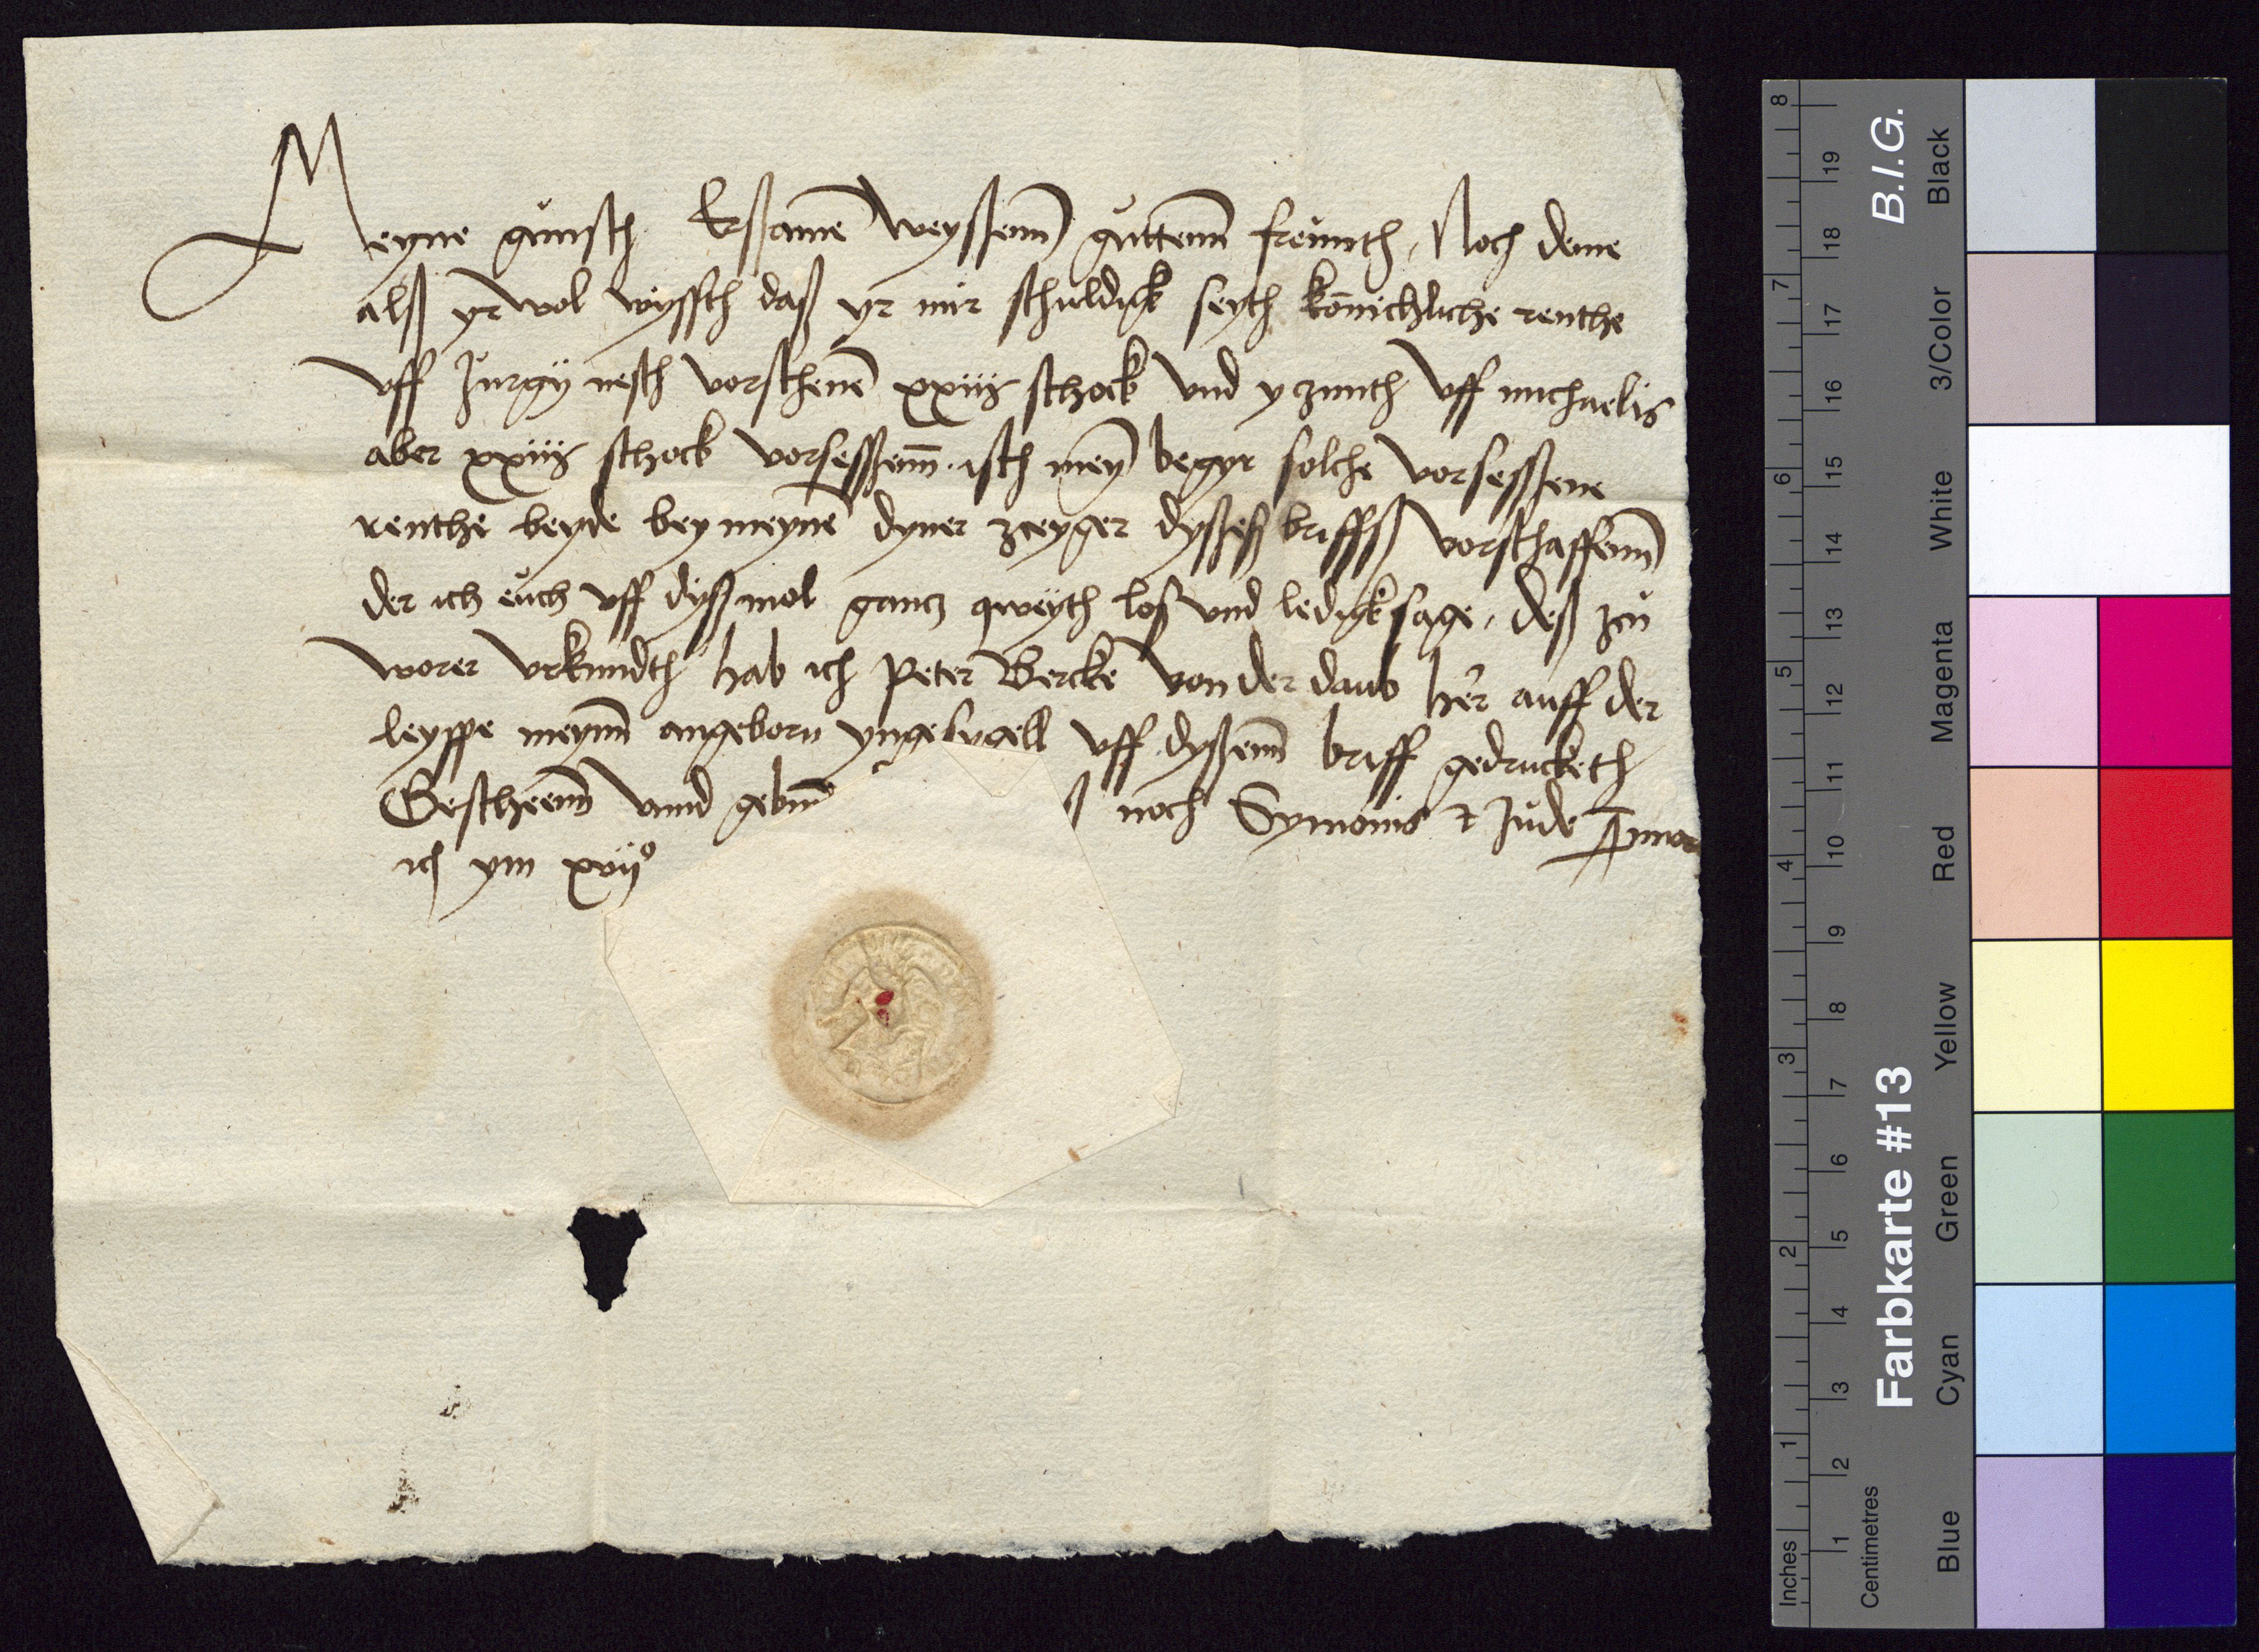 Meyne gunsth Erßame weyßenn guttenn freunth, Noch deme
alß yr wol wyssth daß yr mir schuldigk seyth konichliche renthe
vff Jurgy nesth vorschene xxiiij schock vnd yczunth vff michaelis
aber xxiiij schock vorsesßenn isth mey begyr solche vorsesßene
renthe beyde bey meyne dyner zceyger dyßeß briffß vorschaffenn
der ich euch vff dyßmol gancz qweyth loß vnd ledigk sage, deß zcu
worer vrkundth hab ich Peter Bercke von der daub her auff der
leyppe meynn angeborn yngesygell vff dyßenn briff gedrucketh
Gescheenn vnnd gebenn noch Symonis et Jude Anno
ym xvij°
Inches 1 2 3 4 5 6 7 8
Centimetres 1 2 3 4 5 6 7 8 9 10 11 12 13 14 15 16 17 18 19
Farbkarte #13 B.I.G.
Blue Cyan Green Yellow Red Magenta White 3/Color Black